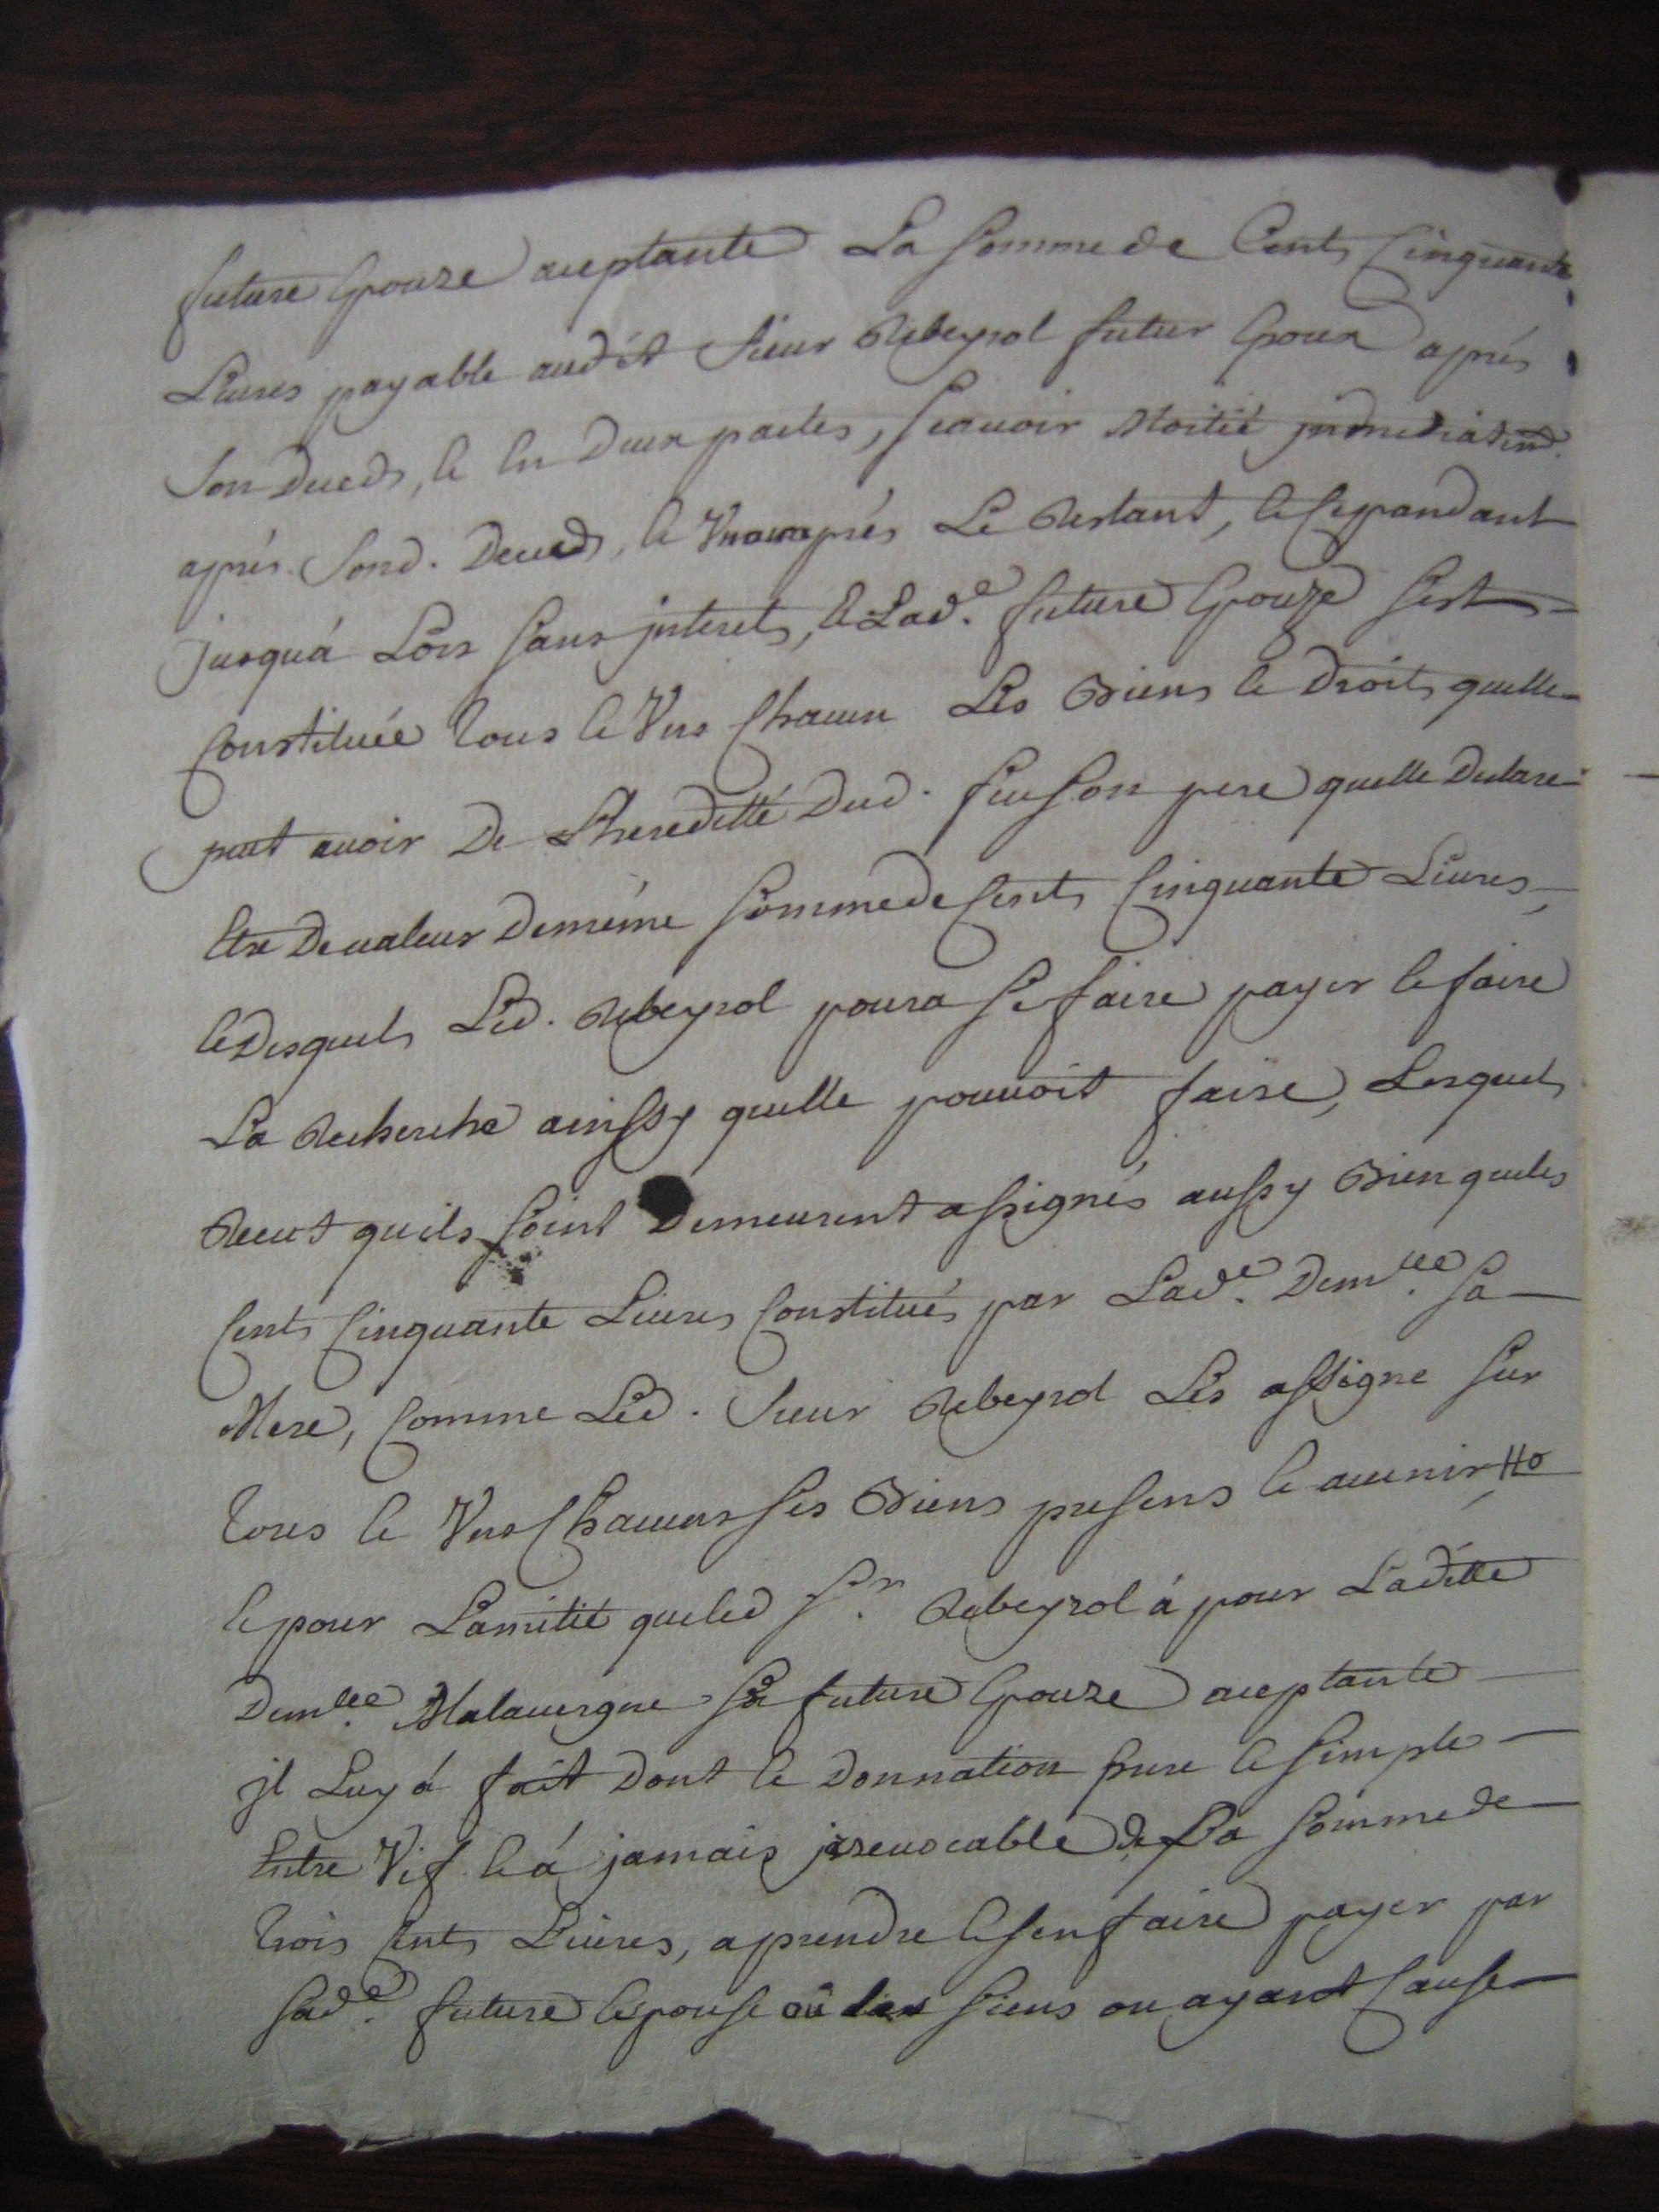 future Epouze aceptante La somme de Cents Cinquante
Livres payable audit sieur Rebeyrol futur Epoux aprés
son deceds, & En deux pactes, scavoir Moitié jmmediatemt.
aprés sond. deceds, & Un an aprés Le Restant, & Cepandant
jusquá Lors sans jnterets, & Lad.e future Epouze sest
Constituée tous & Uns Chacun Les Biens & droits quelle
peut avoir de Lhereditté dud. feu son pere quelle declare
Etre de valeur de même somme de Cents Cinquante Livres,
& desquels Led. Rebeyrol poura se faire payer & faire
La Recherche ainssy quelle pouvoit faire, Lesquels
Receut quils soint demeurent assignés aussy Bien que les
Cents Cinquante Livres Constitués par Lad.e Dem.lle Sa
Mere, Comme Led. Sieur Rebeyrol Les assigne sur
tous & Uns Chacuns ses Biens presens & avenir,
& pour Lamitié que led Sr. Rebeyrol á pour Laditte
Dem.lle Malavergne Sa future Epouze aceptante
jl Luy á fait dont & donnation pure & simple
Entre Vif & á jamais jrrevocable de La somme de
trois Cents Livres, aprendre & sen faire payer par
sad.e future Epouse ou les siens ou ayant Cause